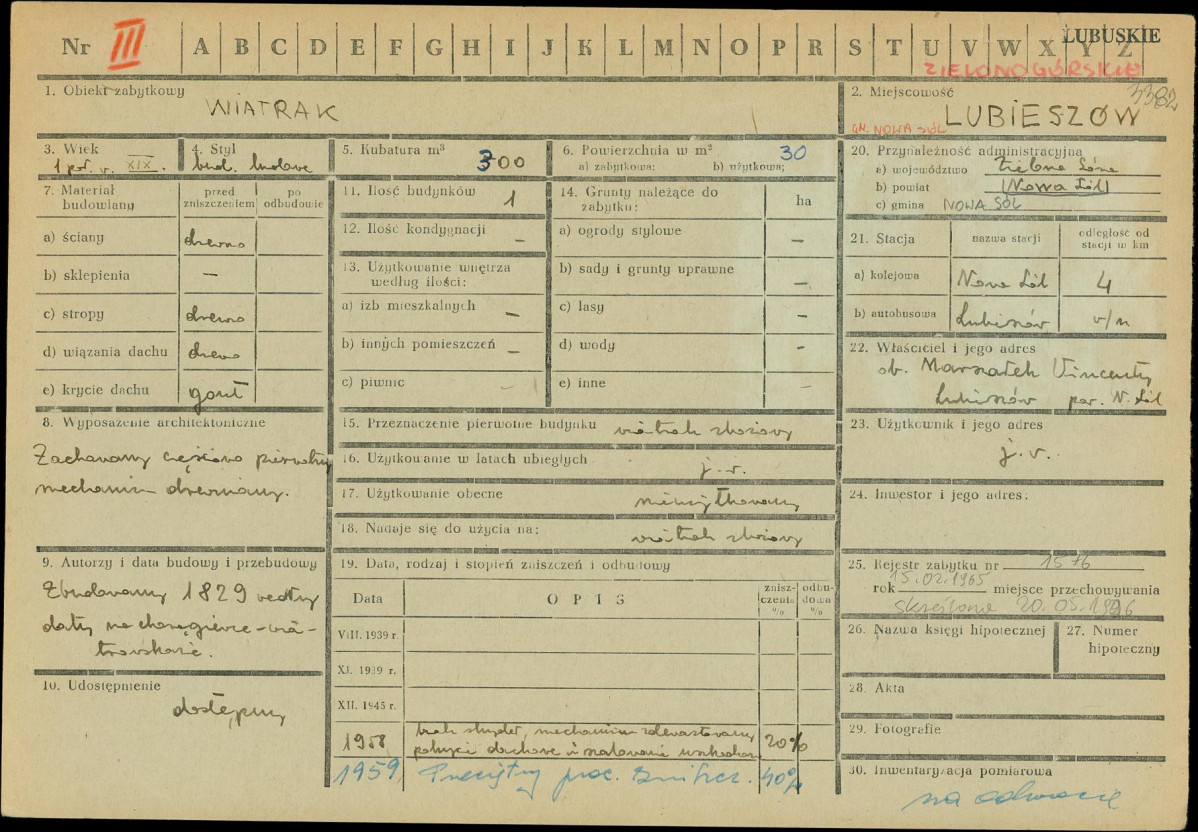 Nr III A B C D E F G H I J K L M N O P R S T U V W X Y Z
LUBUSKIE
ZIELONOGÓRSKIE
3382
1. Obiekt zabytkowy
WIATRAK
2. Miejscowość
GM. NOWA SÓL
LUBIESZÓW
3. Wiek
1 poł. w. XIX.
4. Styl
bud. ludowe
5. Kubatura m³ 300
6. Powierzchnia w m² 30
a) zabytkowa: b) użytkowa:
7. Materiał budowlany
przed zniszczeniem
po odbudowie
a) ściany drewno
b) sklepienia —
c) stropy drewno
d) wiązania dachu drewno
e) krycie dachu gont
8. Wyposażenie architektoniczne
Zachowany częściowo pierwotny
mechanizm drewniany.
9. Autorzy i data budowy i przebudowy
Zbudowany 1829 według
daty na chorągiewce - wia-
trowskazie.
10. Udostępnienie
dostępny
11. Ilość budynków 1
12. Ilość kondygnacji —
13. Użytkowanie wnętrza
według ilości:
a) izb mieszkalnych —
b) innych pomieszczeń —
c) piwnic -
14. Grunty należące do
zabytku:
ha
a) ogrody stylowe —
b) sady i grunty uprawne —
c) lasy —
d) wody -
e) inne -
15. Przeznaczenie pierwotne budynku wiatrak zbożowy
16. Użytkowanie w latach ubiegłych j. w.
17. Użytkowanie obecne nieużytkowany
18. Nadaje się do użycia na: wiatrak zbożowy
19. Data, rodzaj i stopień zniszczeń i odbudowy
Data
OPIS
znisz-
czenia
%
odbu-
dowa
%
VIII. 1939 r.
XI. 1939 r.
XII. 1945 r.
1958 brak skrzydeł, mechanizm zdewastowany
pokrycie dachowe i szalowanie uszkodzone 20%
1959 Przeciętny proc. zniszcz. 40%
20. Przynależność administracyjna
a) województwo Zielona Góra
b) powiat (Nowa Sól)
c) gmina NOWA SÓL
21. Stacja
nazwa stacji
odległość od
stacji w km
a) kolejowa Nowa Sól 4
b) autobusowa Lubieszów w/m
22. Właściciel i jego adres
ob. Marszałek Wincenty
Lubieszów pow. N. Sól
23. Użytkownik i jego adres
j. w.
24. Inwestor i jego adres:
25. Rejestr zabytku nr 1576
rok 15.02.1965 miejsce przechowywania
skreślono 20.05.1996
26. Nazwa księgi hipotecznej
27. Numer
hipoteczny
28. Akta
29. Fotografie
30. Inwentaryzacja pomiarowa
na odwrocie